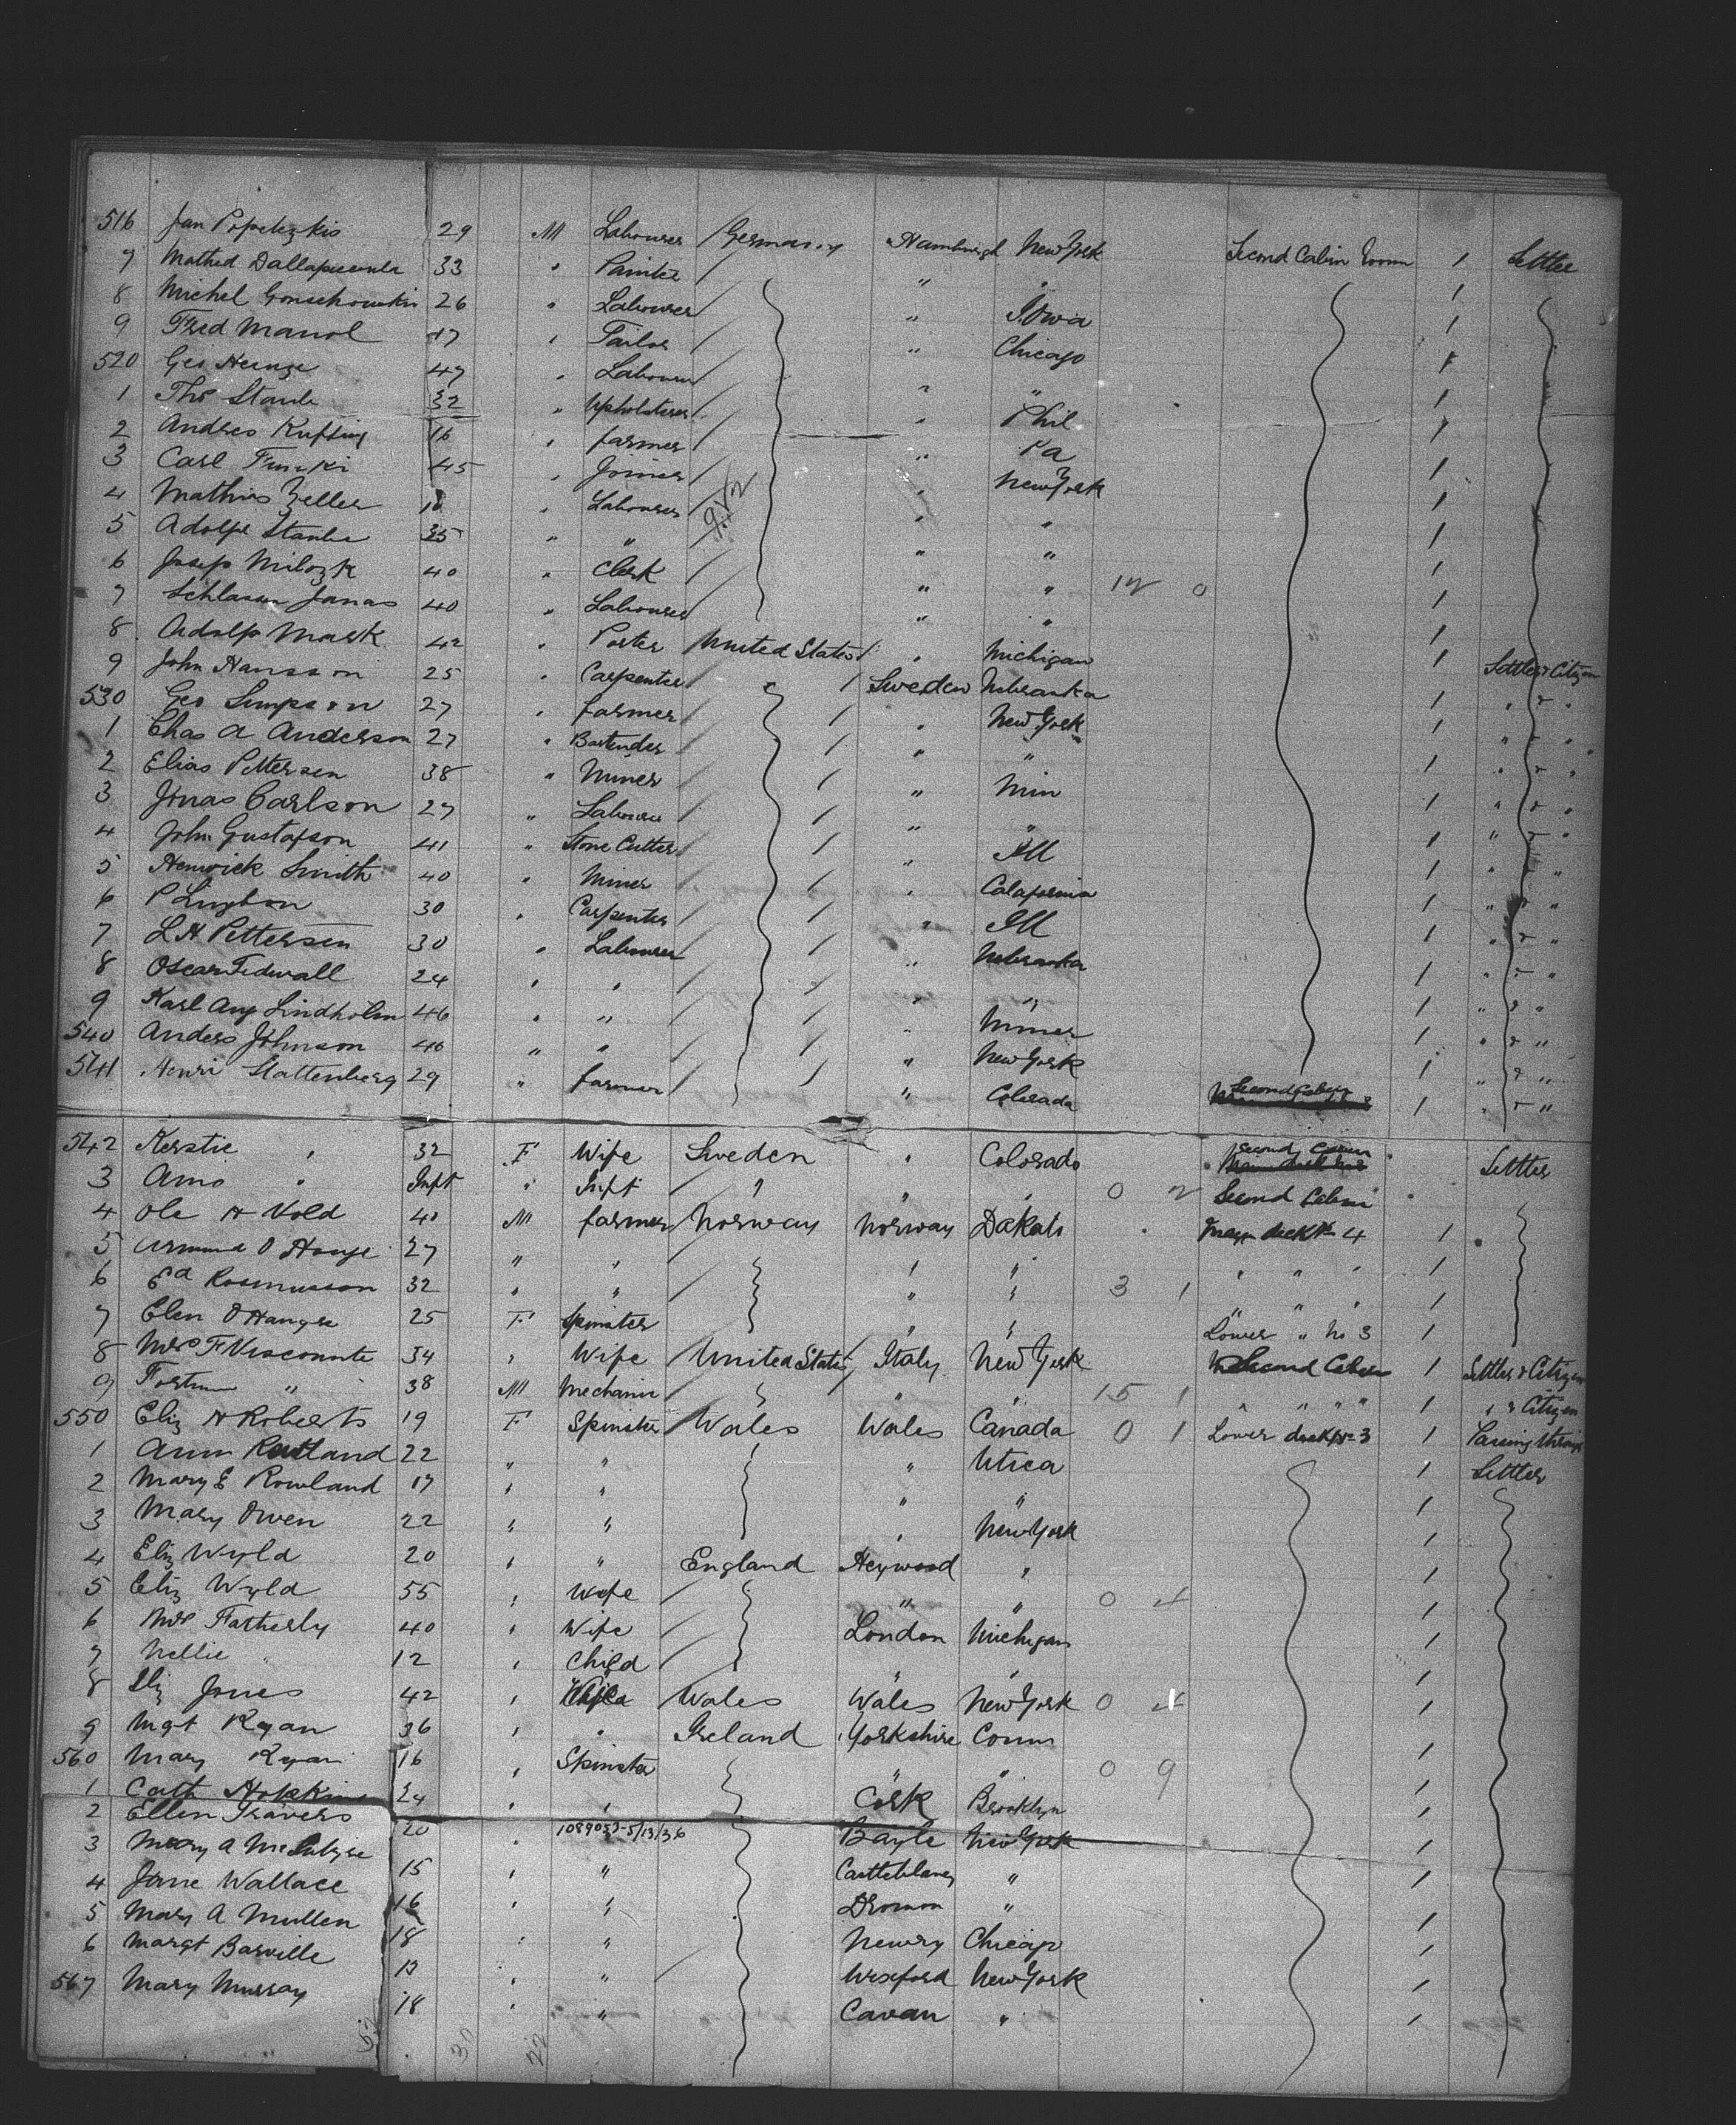 516 Jan Popetezkis 29 M Labourer Germany Hamburgh New York Second Cabin Room 1 Settler
7 Mathed 33 " Painter " "
8 Michel 26 " Labourer " Iowa 1
9 Fred Manol 47 " Tailor " Chicago 1
520 Geo Heinze 47 " Labourer " " 1
1 Thos Staule 32 " Upholsterer " Phil 1
2 Andres 16 " farmer " Pa 1
3 Carl 45 " Joiner " New York 1
4 Mathias Zeller " Labourer " " 1
5 Adolf Staule 35 " " " " 1
6 Josep Milozk 40 " Clerk " " 12 0 1
7 Jonas 40 " Labourer " " 1
8 Adolp Mark 42 " Porter United States " Michigan 1 Settler & Citizen
9 John Hansson 25 " Carpenter " Sweden Nebraska 1 " & "
530 Geo Simpson 27 " farmer " New York 1 " & "
1 Chas A Anderson 27 " Bartender " " 1 " & "
2 Elias Pettersen 38 " Miner " Min 1 " & "
3 Jonas Carlson 27 " Labourer " " 1 " & "
4 John Gustafson 41 " Stone Cutter " Ill 1 " & "
5 Henwick Smith 40 " Miner " Calafornia 1 " & "
6 P 30 " Carpenter " Ill 1 " & "
7 L H Pettersen 30 " Labourer " Nebraska 1 " & "
8 Oscar Tedvall 24 " " " " 1 " & "
9 Karl Aug Lindholm 46 " " " Minner 1 " & "
540 Anders Johnson 46 " " " New York 1 " & "
541 Henri Stattenberg 29 " farmer " Colorada Second Cabin 1 " & "
542 Kerstie " 32 F Wife Sweden " Colorado Second Cabin Settler
3 Amo " Inft " Inft " " " 0 2 Second Cabin
4 Ole H Vold 40 M farmer Norway Norway Dakato deck No 4 1
5 O Hauge 27 " " " " " " " 1
6 Ed Rasmusson 32 " " " " 3 1 " " " 1
7 Elen O Haugse 25 F Spinster " " Lower " No 3 1
8 Mrs F Viscounte 34 " Wife United States Italy New York Second Cabin 1 Settler & Citizen
9 " 38 M Mechanic " " 15 1 " " " " 1 " & Citizen
550 Eliz H Roberts 19 F Spinster Wales Wales Canada 0 1 Lower deck No 3 1 Passing through
1 Ann Rowland 22 " " " Utica 1 Settler
2 Mary E Rowland 17 " " " " 1
3 Mary Owen 22 " " " New York 1
4 Eliz Wyld 20 " " England Heywood " 1
5 Eliz Wyld 55 " Wife " " 0 4 1
6 Mrs Fatherly 40 " Wife London Michigan 1
7 Nellie " 12 " Child " " 1
8 Eliz Jones 42 " Wife Wales Wales New York 0 4 1
9 Mgt Ryan 36 " " Ireland Yorkshire Conn 1
560 Mary Ryan 16 " Spinster " " 0 9 1
1 Cath Hopkins 24 " " Cork Brooklyn 1
2 Ellen Travers 20 " 1089053-5/13/36 Bayle New York 1
3 Mary A McIntyre 15 " " Castleblaney " 1
4 Jane Wallace 16 " " Dromon " 1
5 Mary A Mullen 18 " " Newry Chicago 1
6 Margt Barville " " Wexford New York 1
567 Mary Murray 18 " " Cavan " 1
30 22